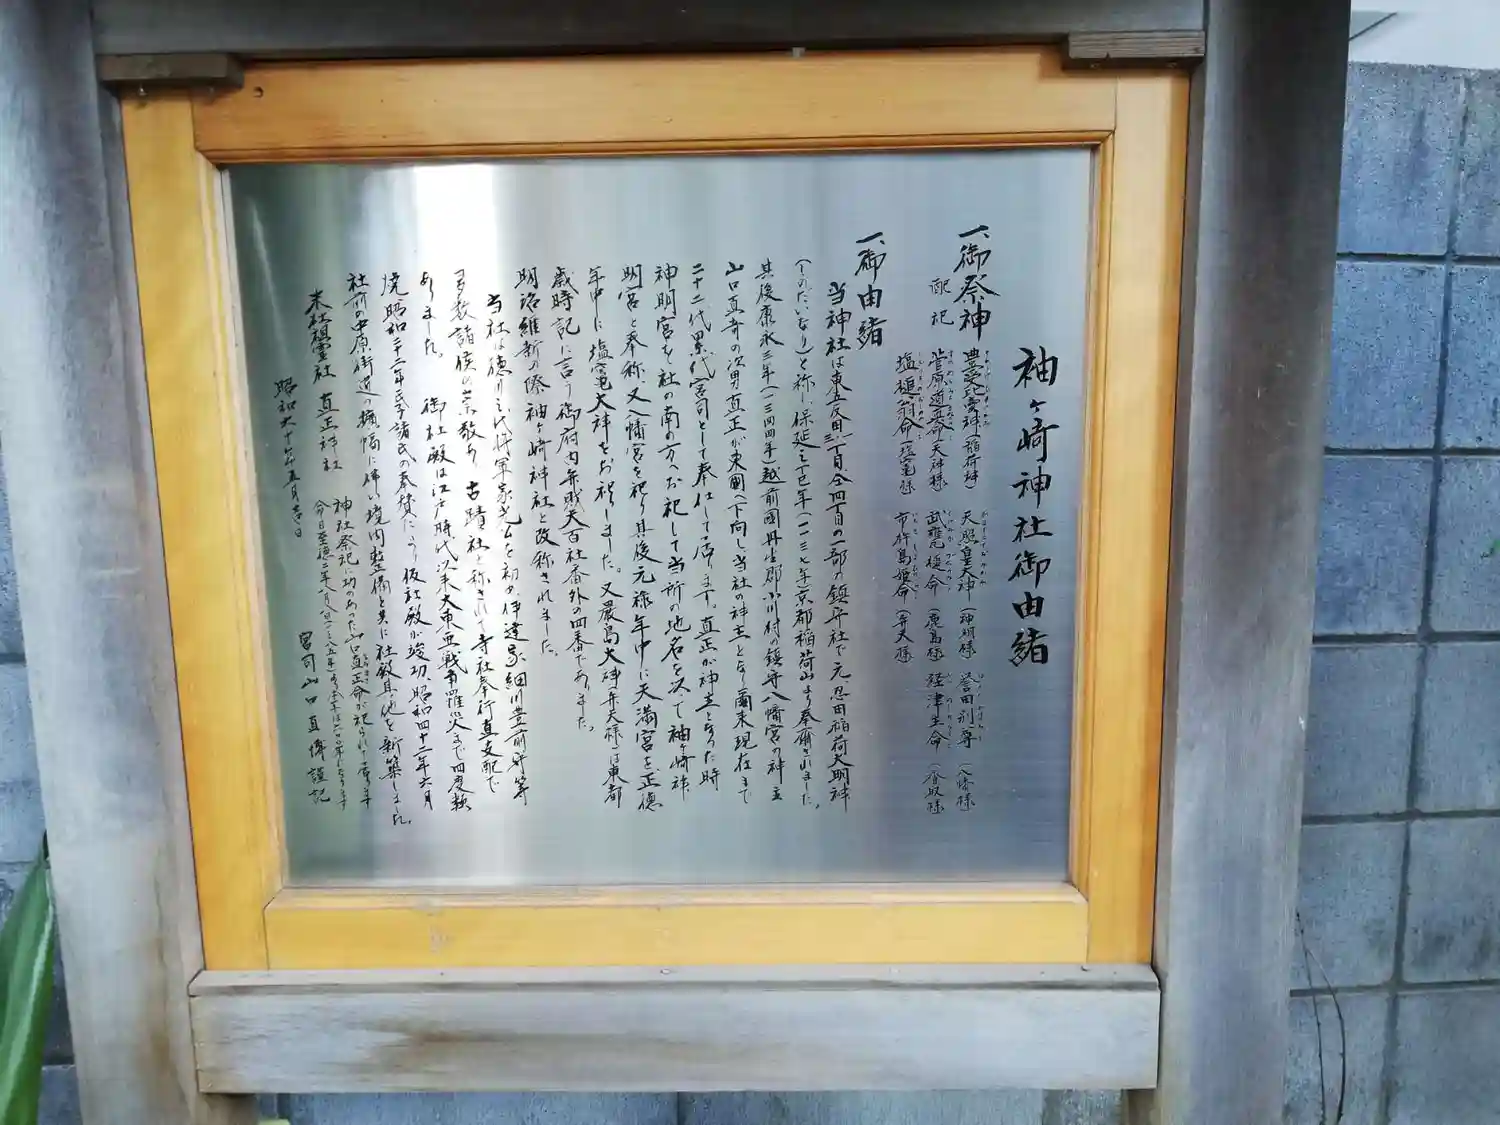 袖ヶ崎神社御由緒
一、御祭神 豊受比売神(稲荷様) 天照皇大神(神明様 誉田別尊(八幡様
配祀 菅原道真命(天神様 武甕槌命(鹿島様 経津主命(香取様
塩槌翁命(塩竃様 市杵島姫命(弁天様
一、御由緒
当神社は東五反田三丁目今四丁目の一部の鎮守社で元、忍田稲荷大明神
(しのだいなり)と称し保延三丁巳年(一一三七年)京都稲荷山より奉斎されました。
其後康永三年(一三四四年)越前国丹生郡小川村の鎮守八幡宮の神主
山口直斉の次男直正が東国へ下向し当社の神主となり爾来現在まで
二十二代累代宮司として奉仕して居ます。直正が神主となった時
神明宮を社の南の方へお祀して当所の地名を以て袖ヶ崎神
明宮と奉称又八幡宮を祀り其後元禄年中に天満宮を、正徳
年中に塩竃大神をお祀しました。又厳島大神(弁天様)は東都
歳時記に言う御府内弁財天百社番外の四番であります。
明治維新の際袖ヶ崎神社と改称されました。
当社は徳川三代将軍家光公を初め伊達家細川豊前守等
多数諸侯の崇敬あり、古蹟社と称されて寺社奉行直支配で
ありました。 御社殿は江戸時代以来大東亜戦争羅災まで四度類
焼昭和二十二年氏子諸氏の奉賛により仮社殿が竣功、昭和四十二年六月
社前の中原街道の拡幅に伴い境内整備と共に社殿其他を新築しました。
末社祖霊社 直正神社 神社祭祀に功のあった山口直正命が祀られて居ます
今日至徳二年八月 日(一三八五年)
昭和六十年五月吉日
宮司山口直 謹記